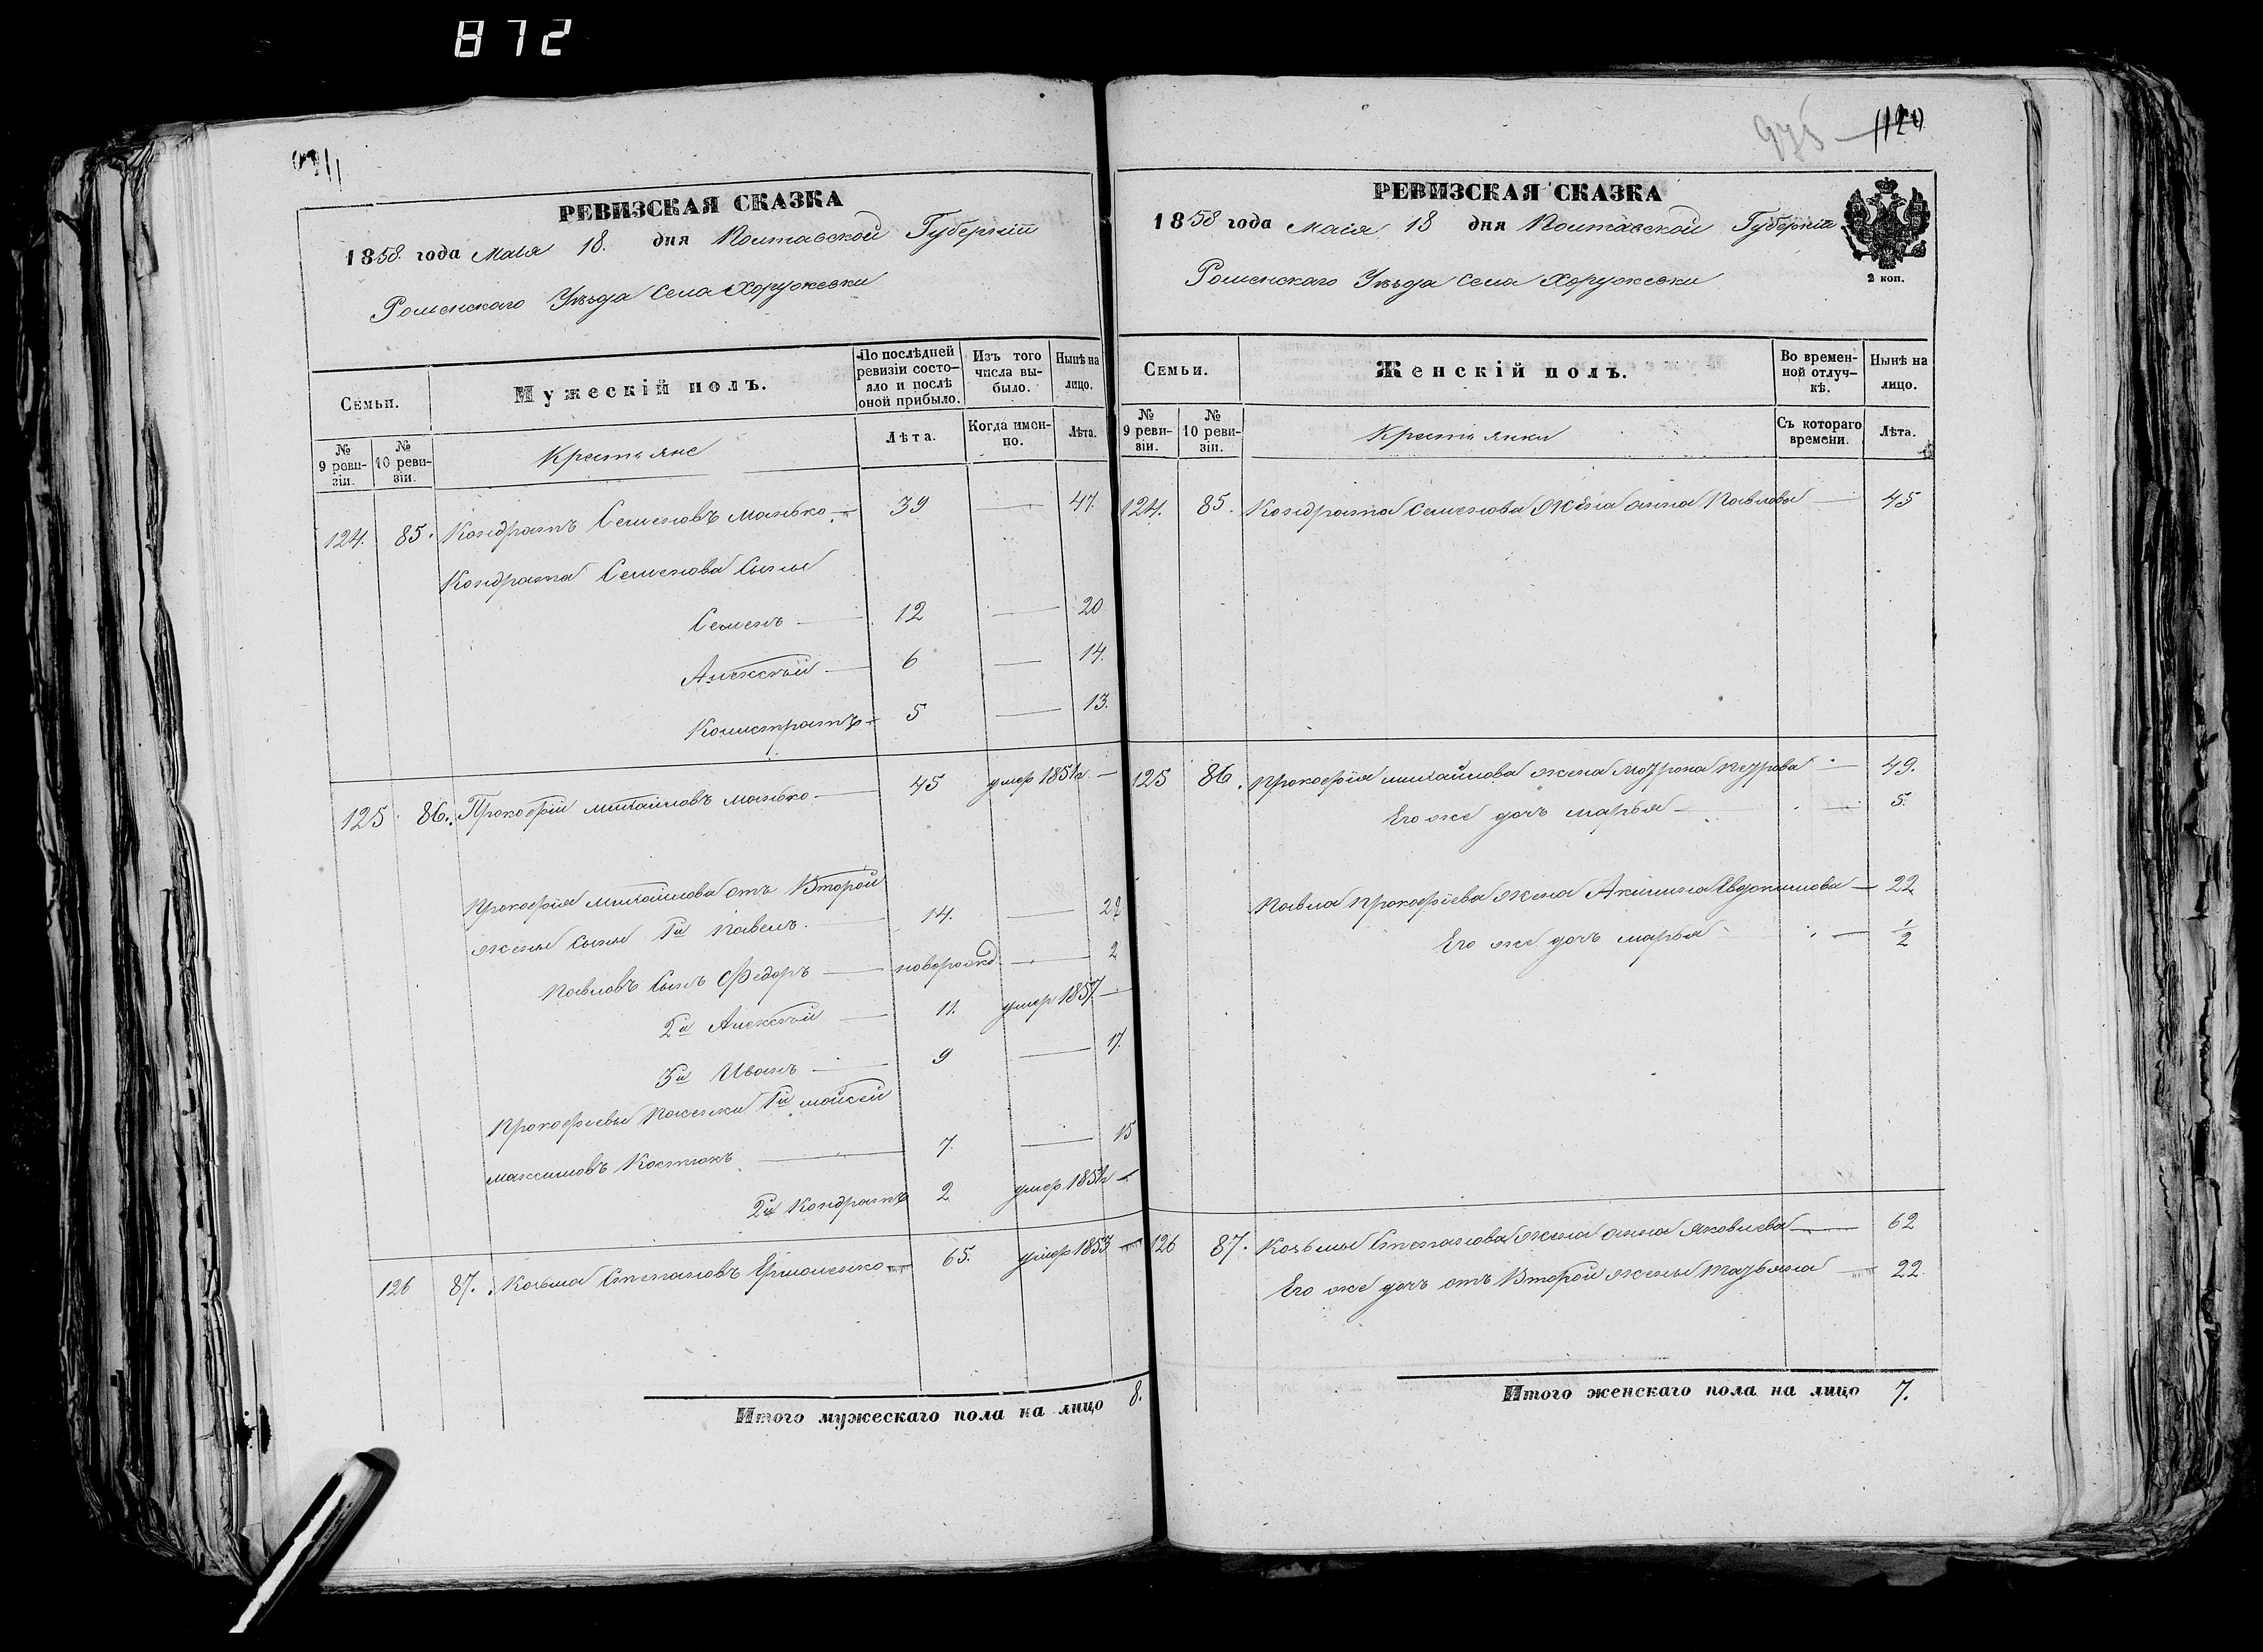 872
РЕВИЗСКАЯ СКАЗКА
1858. года Маія 18. дня Полтавской Губерніи
Роменскаго Уѣзда Села Хоружевки
Семьи.
Мужескій полъ.
По послѣдней ревизіи состояло и послѣ оной прибыло.
Изъ того числа выбыло.
Нынѣ на лицо.
№ 9 ревизіи.
№ 10 ревизіи.
Крестьяне
Лѣта.
Когда именно.
Лѣта.
124. 85. Кондратъ Семеновъ Манько 39 — 47.
Кондрата Семенова Сыны
Семенъ — 12 — 20
Алексѣй — 6 — 14.
Калистратъ — 5 — 13.
125 86. Прокофій Михайловъ Манько — 45 умер 1851г —
Прокофія Михайлова отъ Второй
жены Сыны 1й Павелъ. 14. — 22
Павловъ Сынъ Федоръ — новорожд. — 2
2й Алексѣй — 11. умер 1857 —
3й Иванъ — 9 — 17.
Прокофіевы Пасынки 1й Мойсей
Максимовъ Костюкъ — 7. — 15
2й Кондратъ 2 умер 1851г —
126 87. Козьма Степановъ Ермоленко 65. умер 1853 —
Итого мужескаго пола на лицо 8.
975 1120
РЕВИЗСКАЯ СКАЗКА
1858 года Маія 18 дня Полтавской Губерніи
2 коп.
Роменскаго Уѣзда Села Хоружевки
Семьи.
Женскій полъ.
Во временной отлучкѣ.
Нынѣ на лицо.
№ 9 ревизіи.
№ 10 ревизіи.
Крестьянки
Съ котораго времени.
Лѣта.
124. 85. Кондрата Семенова жена Анна Павлова — 45
125 86. Прокофія Михайлова жена Мотрона — 49.
Его же дочъ Марья — 5.
Павла Прокофіева жена Акилина Евдокимова — 22
Его же дочъ Марья — 1/2
126 87. Козьмы Степанова жена Анна Яковлева — 62
Его же дочъ отъ Второй жены Татьяна — 22.
Итого женскаго пола на лицо 7.